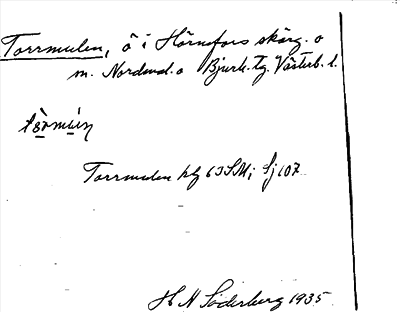 Torrmulen, ö i Hörnefors skärg. o
m. Nordmal. o Bjurh. tg. Västerb. l.
Torrmulen hlf 63SM; Sj 107
H N Söderberg 1935